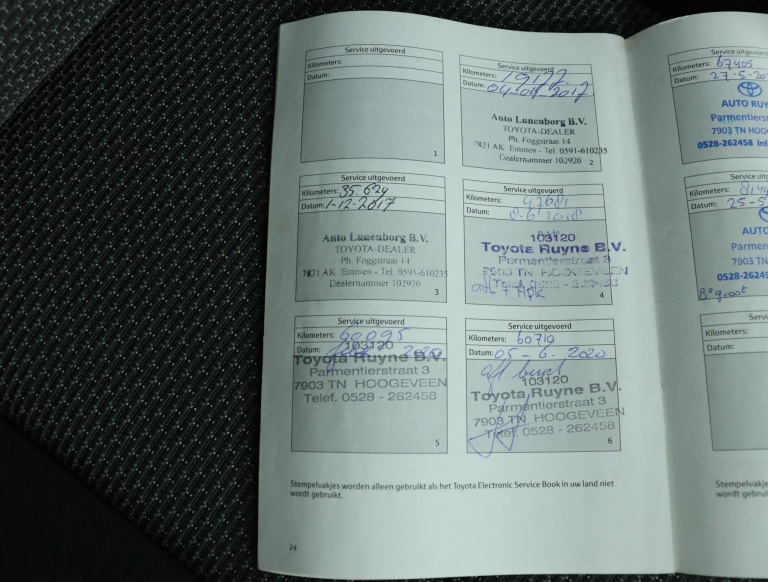 Service uitgevoerd
Kilometers:
Datum:
1
Service uitgevoerd
Kilometers: 19177
Datum: 04-04-2017
Auto Lunenborg B.V.
TOYOTA-DEALER
Ph. Foggstraat 14
7821 AK Emmen - Tel. 0591-610235
Dealernummer 102920
2
Service uitgevoerd
Kilometers: 35.624
Datum: 1-12-2017
Auto Lunenborg B.V.
TOYOTA-DEALER
Ph. Foggstraat 14
7821 AK Emmen - Tel. 0591-610235
Dealernummer 102920
3
Service uitgevoerd
Kilometers: 47681
Datum: 8-6-2018
103120
Toyota Ruyne B.V.
Parmentierstraat 3
7903 TN HOOGEVEEN
4
Service uitgevoerd
Kilometers: 60095
Datum: 2020
103120
Toyota Ruyne B.V.
Parmentierstraat 3
7903 TN HOOGEVEEN
Telef. 0528 - 262458
5
Service uitgevoerd
Kilometers: 60719
Datum: 05-6-2020
103120
Toyota Ruyne B.V.
Parmentierstraat 3
7903 TN HOOGEVEEN
Telef. 0528 - 262458
6
Stempelvakjes worden alleen gebruikt als het Toyota Electronic Service Book in uw land niet
wordt gebruikt.
24
Service uitgevoerd
Kilometers: 67405
Datum: 27-5-20
AUTO RUY
Parmentierst
7903 TN HOO
0528-262458 inf
Service uitg
Kilometers: 814
Datum: 25-5
AUTO
Parmen
7903 TN
0528-2624
8e groot
Servi
Kilometers:
Datum:
Stempelvakje
wordt gebruik